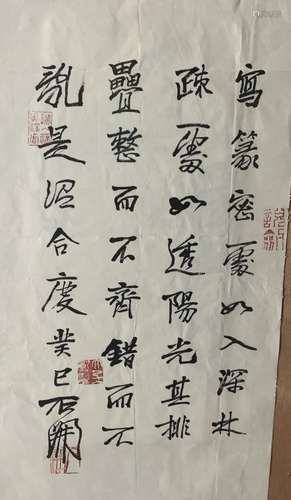 寫篆密處如入深林
疎處如透陽光其排
疊整而不齊錯而不
亂是混合度癸巳石開